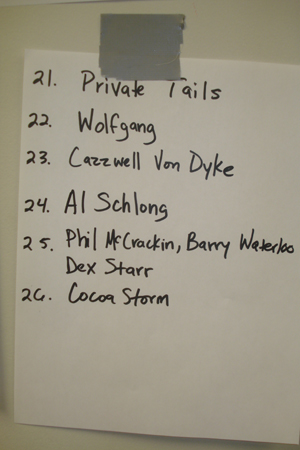 21. Private Tails
22. Wolfgang
23. Cazzwell Von Dyke
24. Al Schlong
25. Phil McCrackin, Barry Waterloo
Dex Starr
26. Cocoa Storm